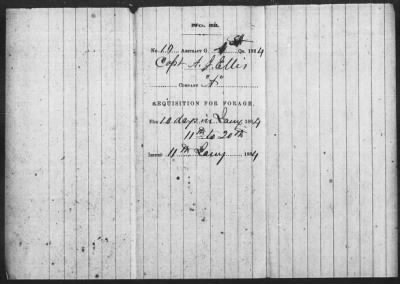 No. 33.
No. 10 Abstract G. 1st Qr. 1864
Capt A. J. Ellis
Company "F"
REQUISITION FOR FORAGE.
For 10 days in Jany, 1864
11th to 20th
Issued 11th Jany 1864